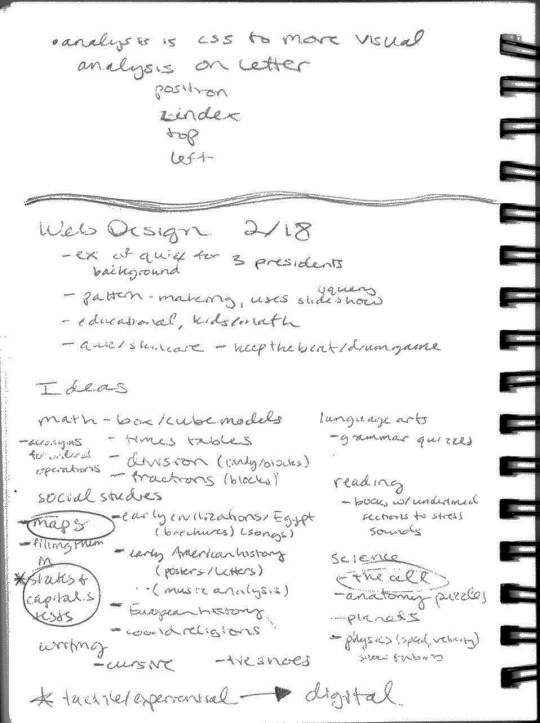 • analysis is css to more visual
analysis on letter
position
z-index
top
left
Web Design 2/18
- ex of quiz for 3 presidents
background
- pattern-making, uses jquery slideshow
- educational, kids/math
- quiz/skincare - keep the beat/drum game
Ideas
math - box/cube models
- acronyms for order of operations
- times tables
- division (candy/blocks)
- fractions (blocks)
social studies
- maps
- filling them in
* states & capitals tests
- early civilizations/Egypt
(brochures) (songs)
- early American history
(posters/letters)
(music analysis)
- European history
- world religions
writing
- cursive
language arts
- grammar quizzes
reading
- books w/ underlined
sections to stress
sounds
science
- the cell
- anatomy puzzles
- planets
- physics (speed, velocity)
* tactile/experiential → digital